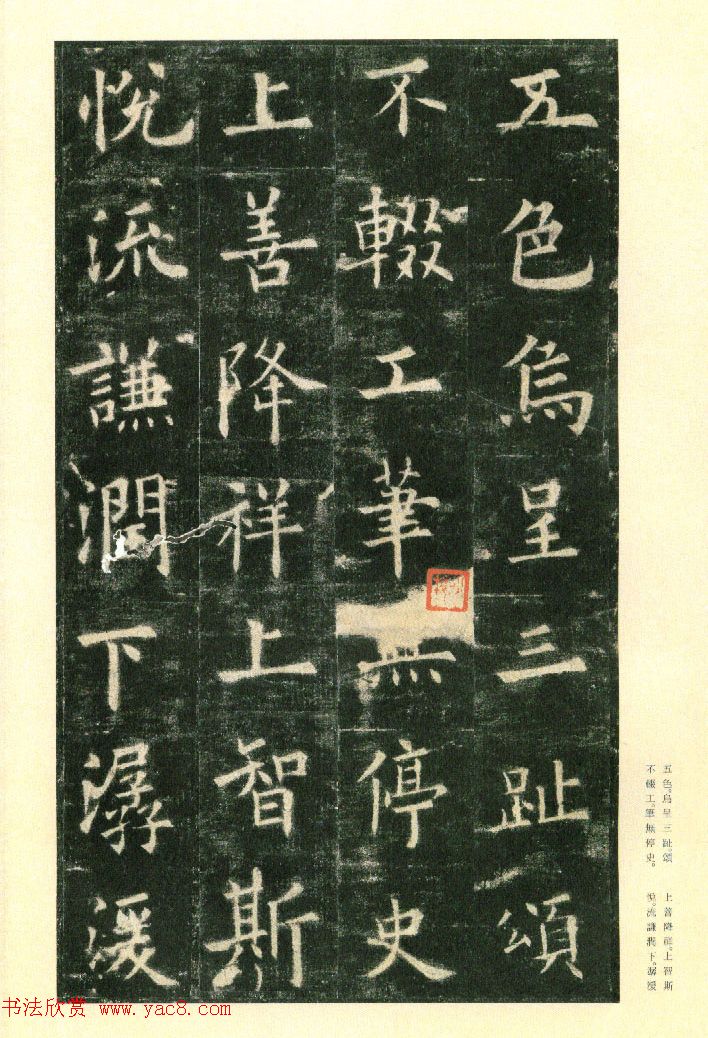 五色烏呈三趾頌
不輟工筆無停史
上善降祥上智斯
悦流謙潤下潺湲
五色。烏呈三趾。頌
不輟工。筆無停史。
上善降祥。上智斯
悅。流謙潤下。潺湲
书法欣赏 www.yac8.com